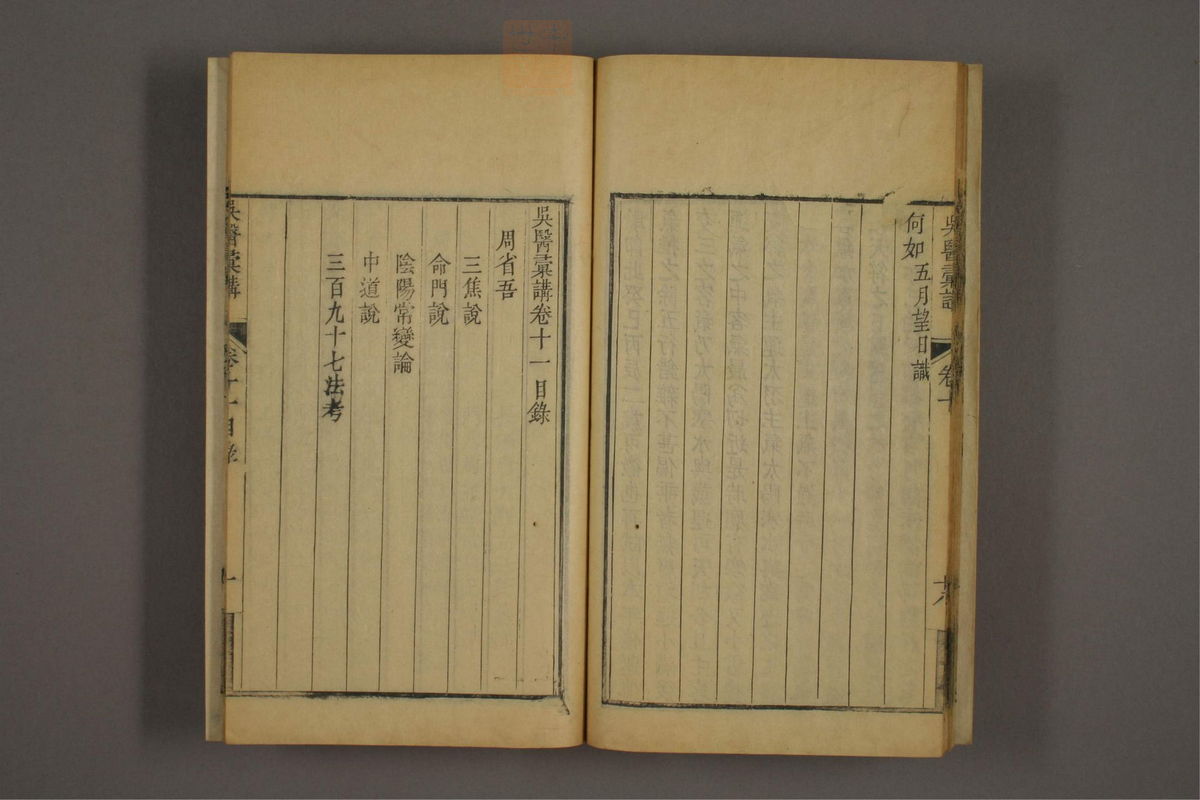 吳醫彙講
卷十
何如五月望日識
吳醫彙講卷十一目錄
周省吾
三焦說
命門說
陰陽常變論
中道說
三百九十七法考
吳醫彙講
卷十一目錄
一